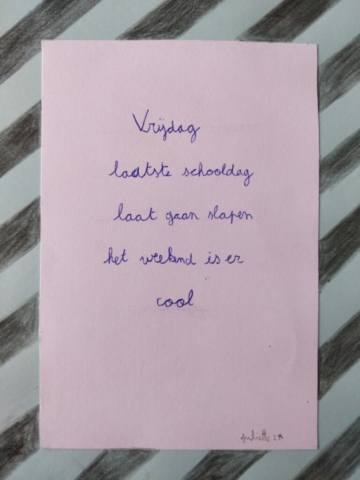 Vrijdag
laatste schooldag
laat gaan slapen
het weekend is er
cool